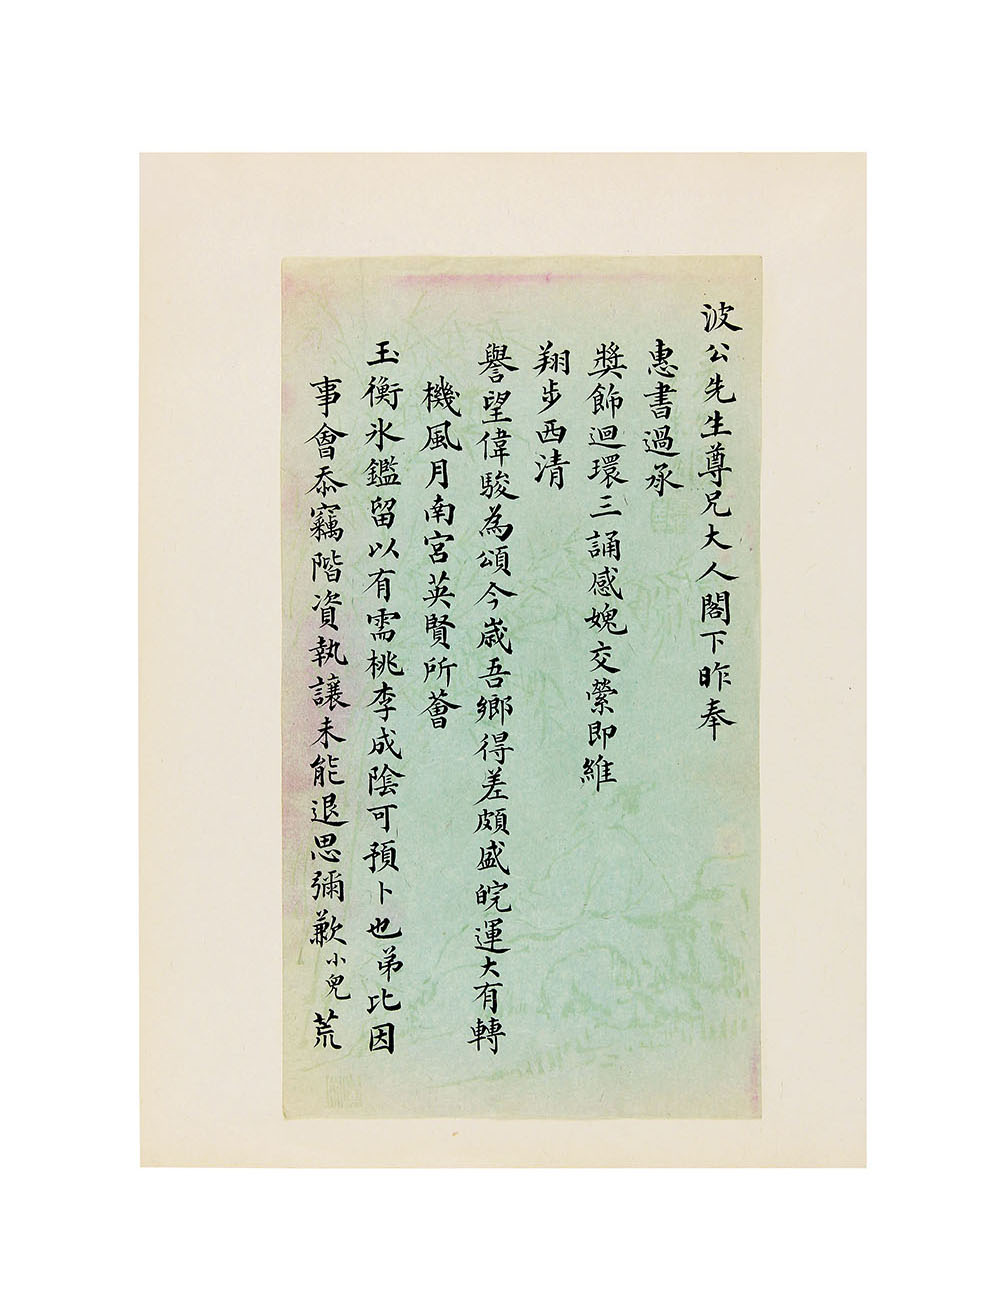 波公先生尊兄大人閣下昨奉
惠書過承
獎飾迴環三誦感媿交縈即維
翔步西清
譽望偉駿為頌今歲吾鄉得差頗盛皖運大有轉
機風月南宮英賢所薈
玉衡氷鑑留以有需桃李成陰可預卜也弟比因
事會忝竊階資執讓未能退思彌歉小兒荒